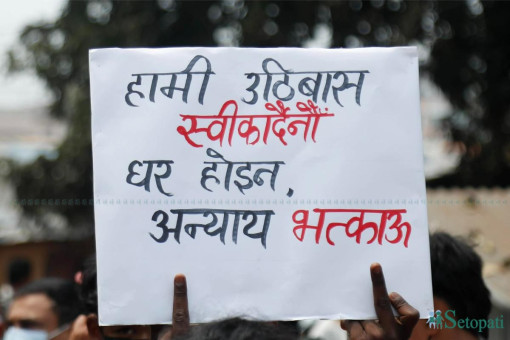 हामी उठिबास
स्वीकार्दैनौं
घर होइन,
अन्याय भत्काऊ
Setopati